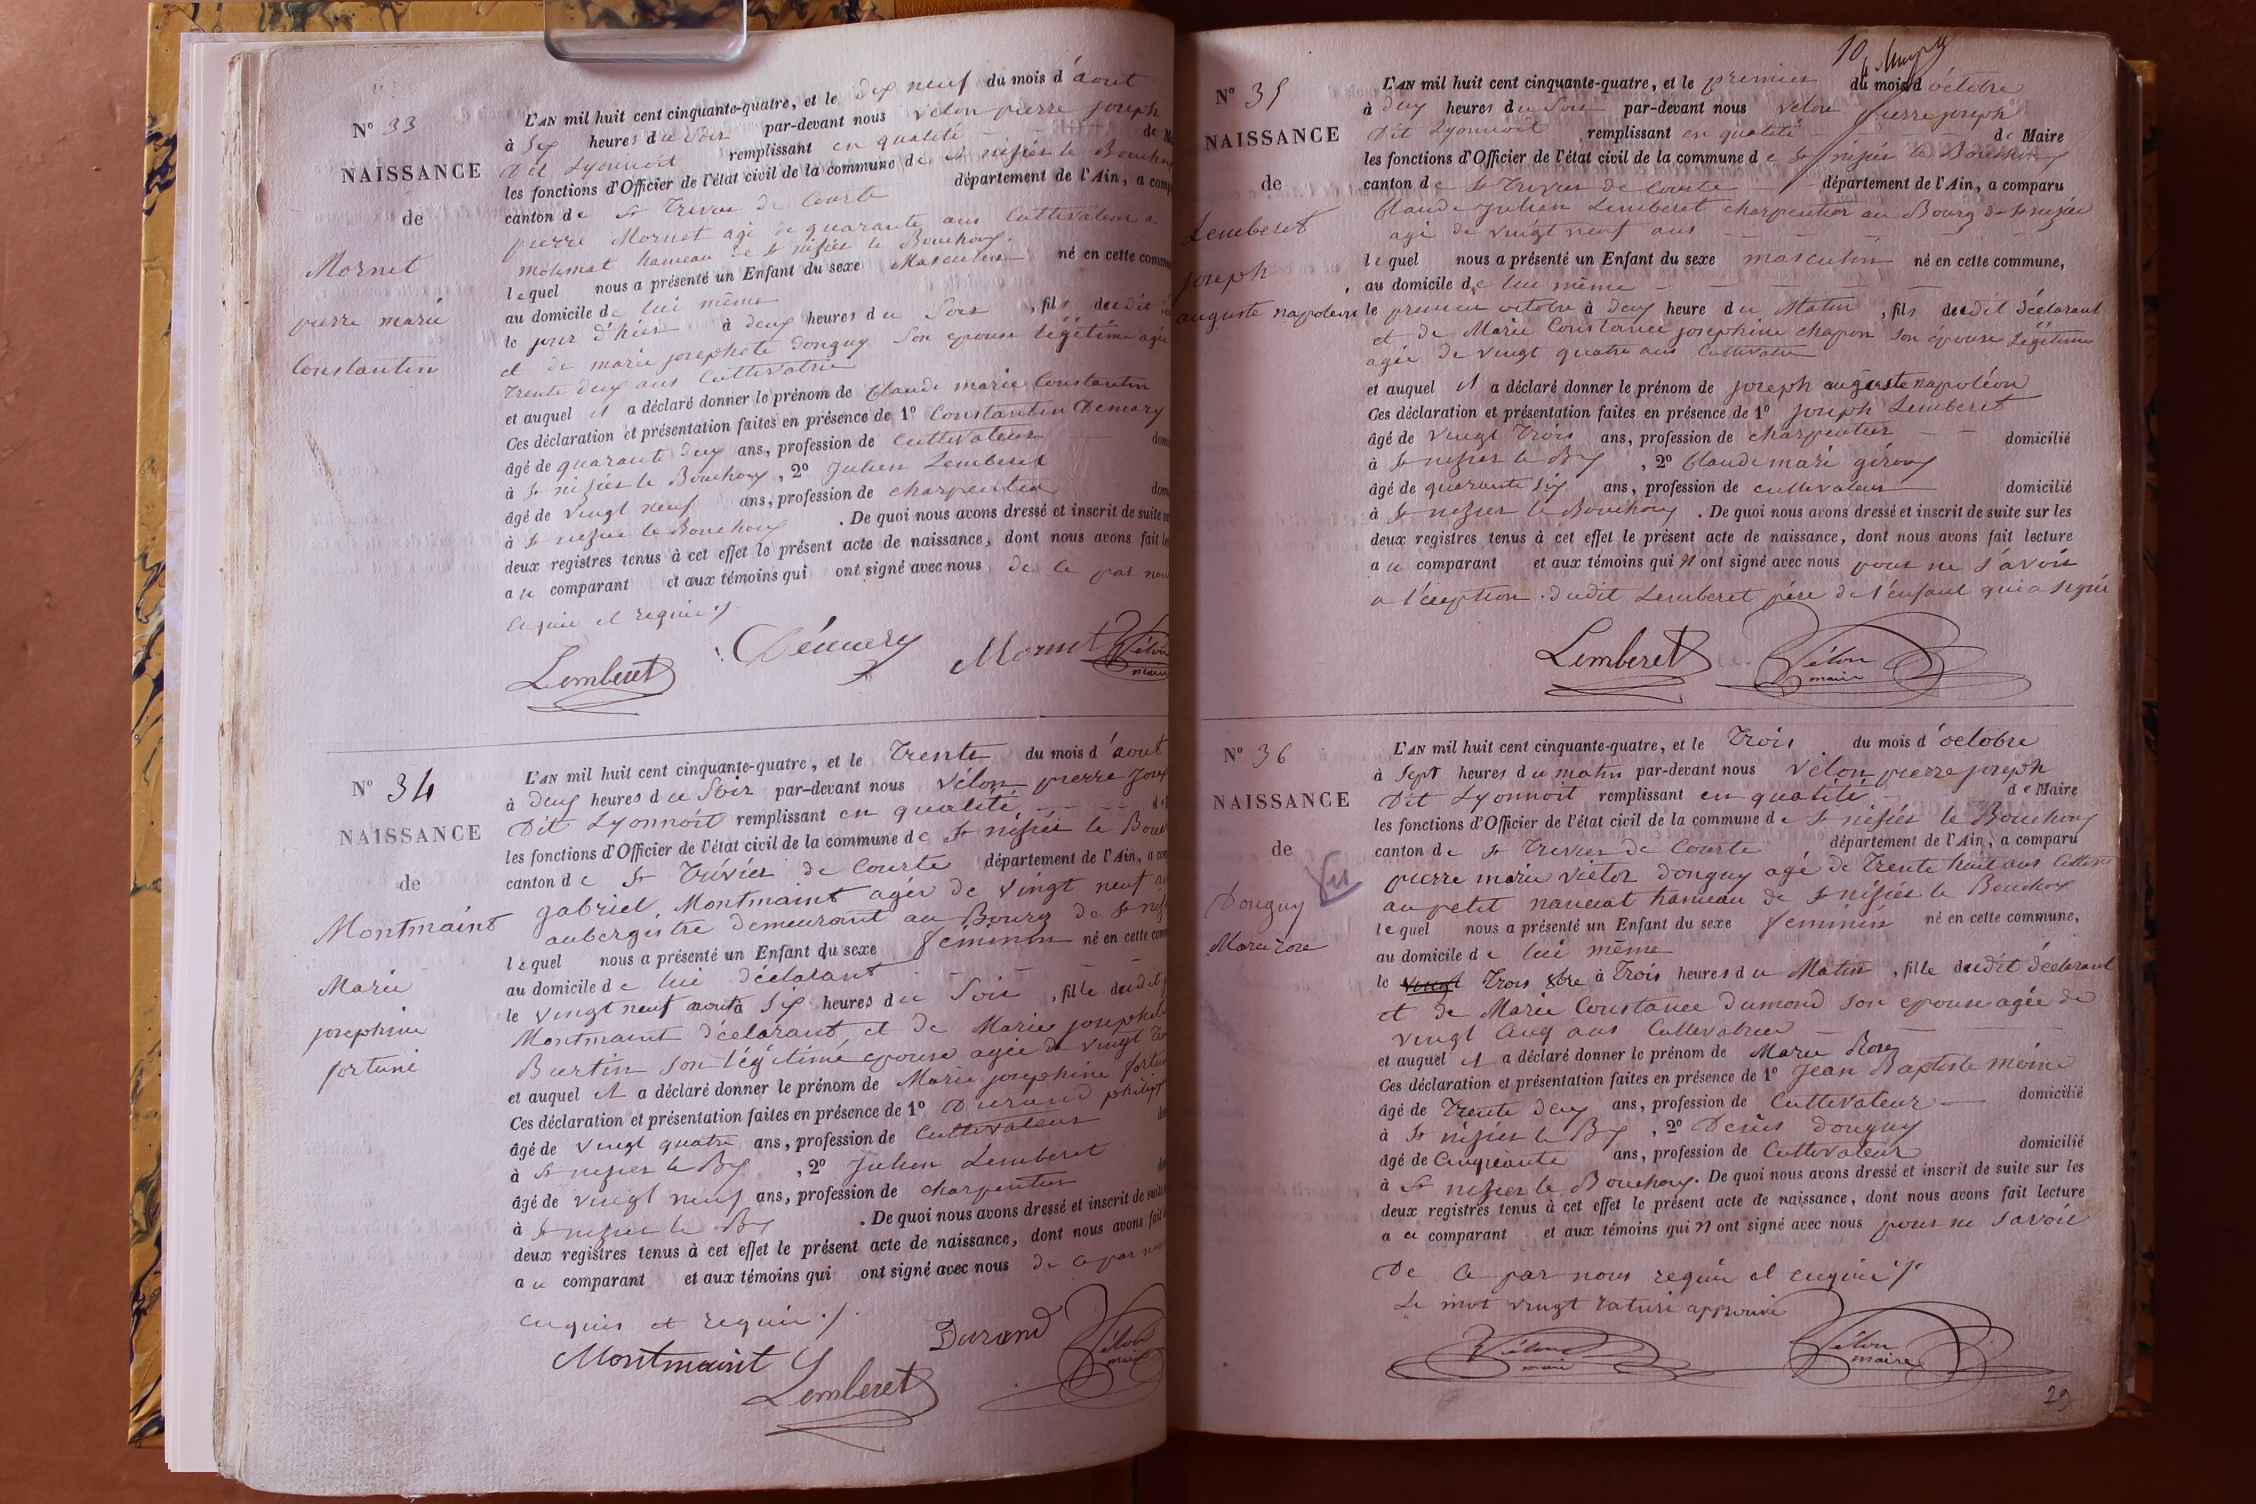 N° 33
NAISSANCE
de
Mornet
pierre marie
Constantin
L'AN mil huit cent cinquante-quatre, et le dix neuf du mois d'aout
à Six heures du Soir par-devant nous vélon pierre joseph
Dit Lyonnoit remplissant en qualité de M
les fonctions d'Officier de l'état civil de la commune de St nisiér le Bouchoux
canton de St Trivier de Courte département de l'Ain, a comp
pierre Mornet agé de quarante ans Cultivateur a
hameau de St nisiér le Bouchoux
lequel nous a présenté un Enfant du sexe Masculin né en cette commu
au domicile de lui même
le jour d'hier à deux heures du Soir, fils dudit
et de marie josephete Donguy Son epouse légétime agée
Trente deux ans Cultivatrice
et auquel il a déclaré donner le prénom de Claude marie Constantin
Ces déclaration et présentation faites en présence de 1° Constantin Demary
âgé de quarante deux ans, profession de Cultivateur dom
à St nisiér le Bouchoux, 2° Julien Lemberet
âgé de vingt neuf ans, profession de charpentier dom
à St nisier le Bouchoux. De quoi nous avons dressé et inscrit de suite su
deux registres tenus à cet effet le présent acte de naissance, dont nous avons fait le
au comparant et aux témoins qui ont signé avec nous de ce par nou
enquis et requis ./.
Lemberet Démery Mornet Vélon
maire
N° 34
NAISSANCE
de
Montmaint
Marie
josephine
fortuné
L'AN mil huit cent cinquante-quatre, et le Trente du mois d'aout
à deux heures du Soir par-devant nous vélon pierre jose
Dit Lyonnoit remplissant en qualité de
les fonctions d'Officier de l'état civil de la commune de St nisiér le Bouc
canton de St Trivier de Courte département de l'Ain, a com
gabriel Montmaint agér de vingt neuf an
aubergistre demeurant au Bourg de St nis
lequel nous a présenté un Enfant du sexe feminin né en cette com
au domicile de lui déclarant
le vingt neuf aout à Six heures du Soir, fille dudit
Montmaint déclarant et de Marie josephete
Burtin Son légitimé epouse agée de vingt
et auquel il a déclaré donner le prénom de Marie josephine fortun
Ces déclaration et présentation faites en présence de 1° Durand philipp
âgé de vingt quatre ans, profession de Cultivateur
à St nisier le Bx, 2° Julien Lemberet
âgé de vingt neuf ans, profession de charpentier
à St nisier le Bx. De quoi nous avons dressé et inscrit de suite
deux registres tenus à cet effet le présent acte de naissance, dont nous avons fait
au comparant et aux témoins qui ont signé avec nous de ce par nou
enquis et requis ./.
Montmaint Durand Vélon
Lemberet maire
10
N° 35
NAISSANCE
de
Lemberet
joseph
auguste napoléon
L'AN mil huit cent cinquante-quatre, et le premier du mois d'octobre
à deux heures du Soir par-devant nous vélon pierre joseph
Dit Lyonnoit remplissant en qualité de Maire
les fonctions d'Officier de l'état civil de la commune de St nisiér le Bouchoux
canton de St Trivier de Courte département de l'Ain, a comparu
Claude julien Lemberet charpentier au Bourg de St nisiér
agé de vingt neuf ans
lequel nous a présenté un Enfant du sexe masculin né en cette commune,
au domicile de lui même
le premier octobre à deux heure du Matin, fils dudit déclarant
et de Marie Constance josephine chapon Son épouse Légétime
agée de vingt quatre ans Cultivatrice
et auquel il a déclaré donner le prénom de joseph auguste napoléon
Ces déclaration et présentation faites en présence de 1° joseph Lemberet
âgé de vingt Trois ans, profession de charpentier domicilié
à St nisier le Bx, 2° Claude marie géroux
âgé de quarante Six ans, profession de cultivateur domicilié
à St nisier le Bouchoux. De quoi nous avons dressé et inscrit de suite sur les
deux registres tenus à cet effet le présent acte de naissance, dont nous avons fait lecture
au comparant et aux témoins qui n'ont signé avec nous pour ne Savoir
a l'éxeption dudit Lemberet pére de l'enfant qui a signé
Lemberet Vélon
maire
N° 36
NAISSANCE
de
Donguy
Marie rose
L'AN mil huit cent cinquante-quatre, et le Trois du mois d'octobre
à Sept heures du matin par-devant nous vélon pierre joseph
Dit Lyonnoit remplissant en qualité de Maire
les fonctions d'Officier de l'état civil de la commune de St nisiér le Bouchoux
canton de St Trivier de Courte département de l'Ain, a comparu
pierre marie victor Donguy agé de Trente huit ans Cultivr
au petit hameau de St nisiér le Bouchoux
lequel nous a présenté un Enfant du sexe feminin né en cette commune,
au domicile de lui même
le vingt Trois 8bre à Trois heures du Matin, fille dudit déclarant
et de Marie Constance Dumond Son epouse agée de
vingt Cinq ans Cultivatrice
et auquel il a déclaré donner le prénom de Marie Rose
Ces déclaration et présentation faites en présence de 1° Jean Baptiste
âgé de Trente deux ans, profession de Cultivateur domicilié
à St nisiér le Bx, 2° Denis Donguy
âgé de Cinquante ans, profession de Cultivateur domicilié
à St nisier le Bouchoux. De quoi nous avons dressé et inscrit de suite sur les
deux registres tenus à cet effet le présent acte de naissance, dont nous avons fait lecture
au comparant et aux témoins qui n'ont signé avec nous pour ne Savoir
De ce par nous requis et enquis ./.
Le mot vingt raturé approuvé
Vélon Vélon
maire maire
29